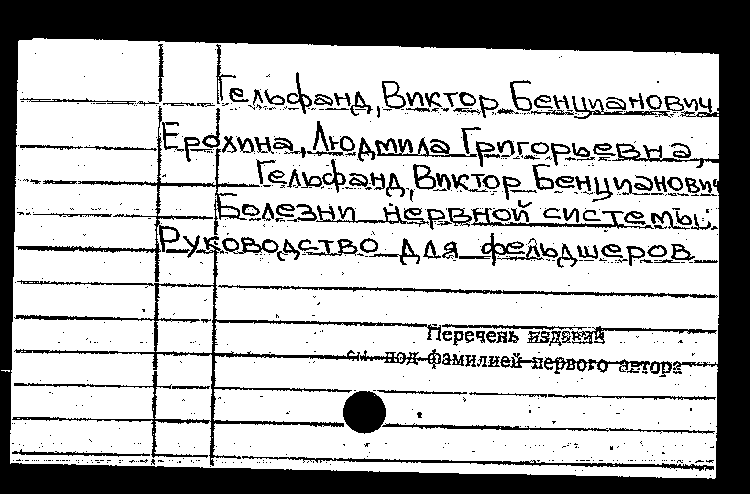 Гельфанд, Виктор Бенцианович.
Ерохина, Людмила Григорьевна,
Гельфанд, Виктор Бенцианович
Болезни нервной системы:
Руководство для фельдшеров
Перечень изданий
см. под фамилией первого автора